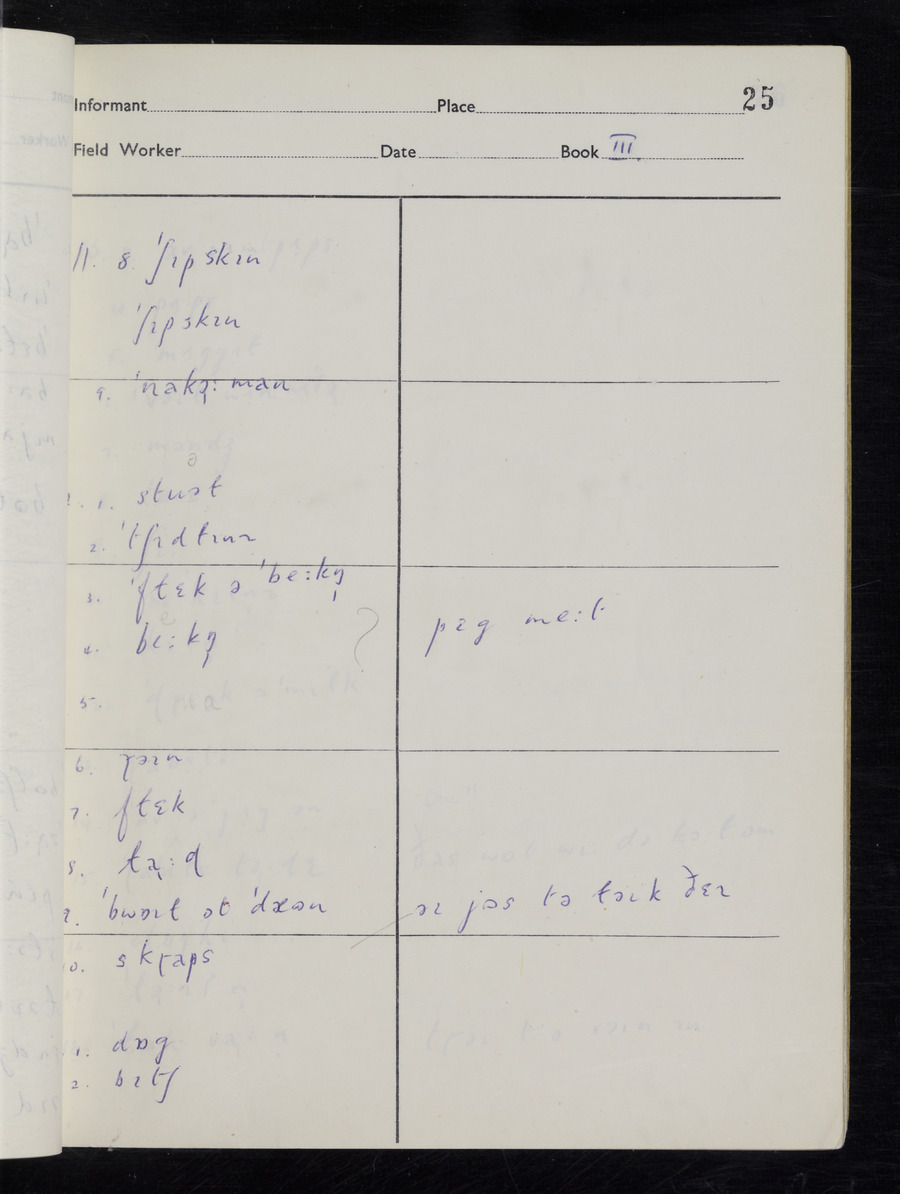 Informant Place 25
Field Worker Date Book III
11. 8. ˈʃɪpskɪn
ˈʃɪpskɪn
9. ˈnakə̣ːman
ə
1. stuət
2. ˈtʃɪdtɪnz
3. ˈftɛk ə ˈbeːkŋ̩
4. beːkŋ̩ ? pɪg meːt
5.
6. ɽəɪn
7. ftɛk
8. tạːd
9. ˈbwəɪl ət ˈdæən əɪ jəs tə təɪk ðɛɪ
10. skɽaps
1. dɒg
2. bɪtʃ